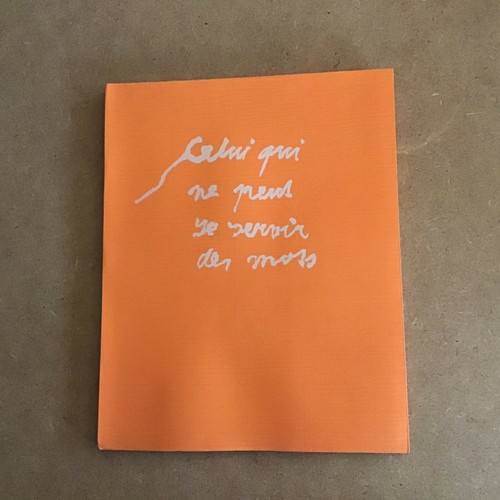 Celui qui
ne peut
se servir
des mots